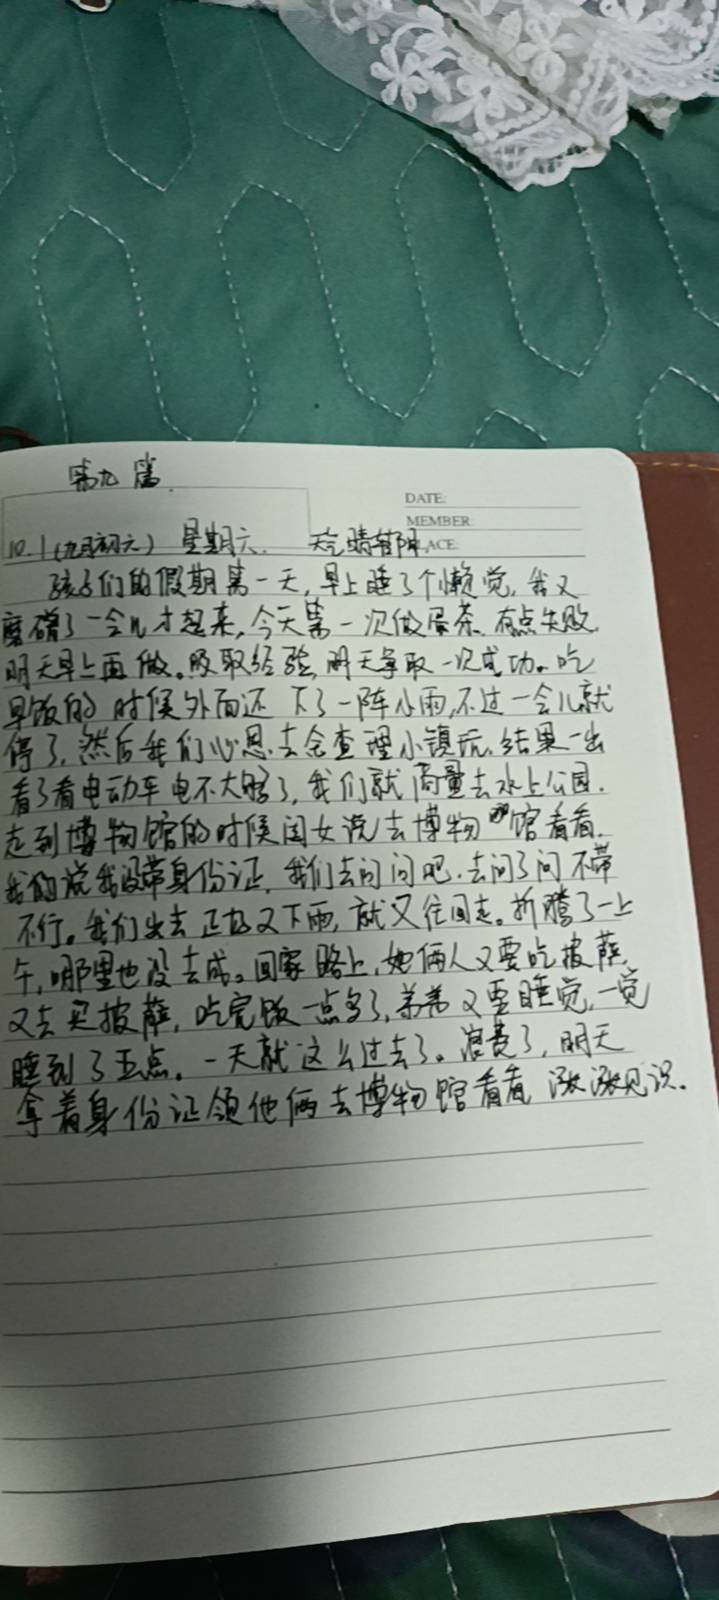 第九篇
DATE:
MEMBER:
10.1(九月初六) 星期六. 天气晴转阴 ACE:
孩子们的假期第一天,早上睡了个懒觉,我又
磨蹭了一会儿才起来,今天第一次做蛋茶,有点失败,
明天早上再做。吸取经验,明天争取一次成功。吃
早饭的时候外面还下了一阵小雨,不过一会儿就
停了,然后我们心思去会查理小镇玩,结果一出
看了看电动车电不大够了,我们就商量去水上公园.
走到博物馆的时候闺女说去博物馆看看.
我的说我没带身份证,我们去问问吧.去问了问不带
不行。我们出去正好又下雨,就又往回走。折腾了一上
午,哪里也没去成。回家路上,她俩人又要吃披萨,
又去买披萨,吃完饭一点多了,弟弟又要睡觉,一觉
睡到了五点。一天就这么过去了。浪费了,明天
拿着身份证领他俩去博物馆看看,涨涨见识.